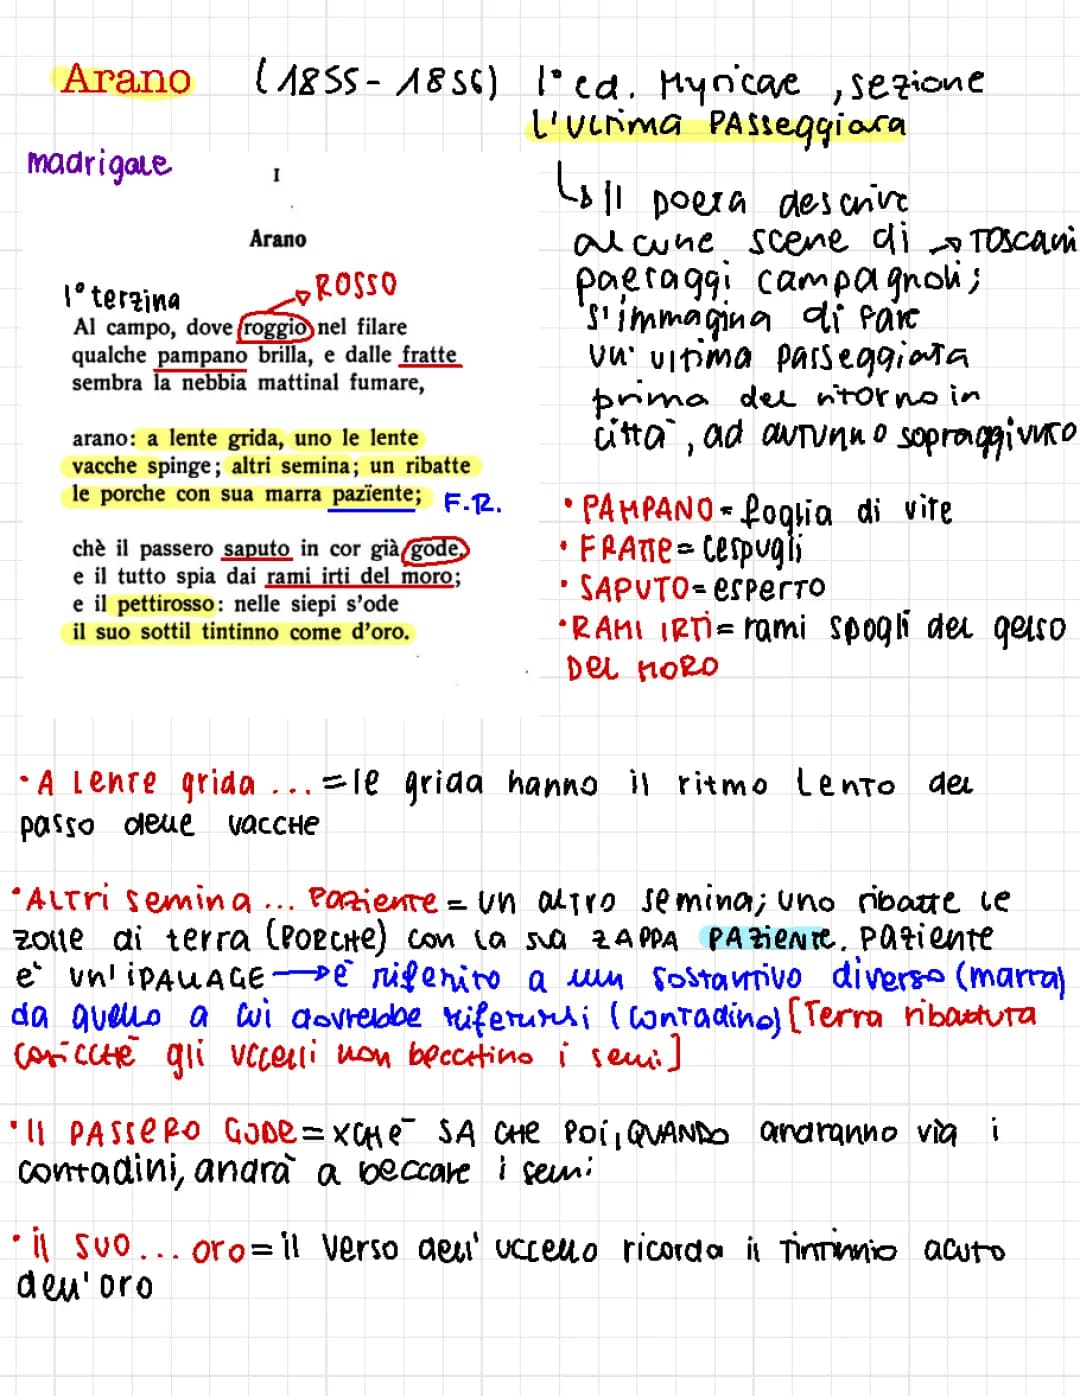 Arano (1855-1856) 1° ed. Myricae, sezione
L'ultima PASSeggiata
madrigale
I
Arano
↳ Il poeta descrive
alcune scene di → TOSCANI
paesaggi campagnoli;
s'immagina di fare
un' ultima passeggiata
prima del ritorno in
città, ad autunno sopraggiunto
1° terzina
→ ROSSO
Al campo, dove roggio nel filare
qualche pampano brilla, e dalle fratte
sembra la nebbia mattinal fumare,
arano: a lente grida, uno le lente
vacche spinge; altri semina; un ribatte
le porche con sua marra pazïente; F.R.
chè il passero saputo in cor già gode,
e il tutto spia dai rami irti del moro;
e il pettirosso: nelle siepi s'ode
il suo sottil tintinno come d'oro.
• PAMPANO = foglia di vite
• FRATTE = cespugli
• SAPUTO = esperto
• RAMI IRTI = rami spogli del gelso
DEL MORO
• A Lente grida ... = le grida hanno il ritmo lento del
passo delle vacche
• ALTri semina ... Paziente = un altro semina; uno ribatte le
zolle di terra (PORCHE) con la sua ZAPPA PAZIENTE. Paziente
è un' iPALLAGE → è riferito a un sostantivo diverso (marra)
da quello a cui dovrebbe riferirsi (contadino) [Terra ribattuta
cosicché gli uccelli non becchino i semi]
• Il PASSERO GODE = xché SA CHE POi, QUANDO andranno via i
contadini, andrà a beccare i semi
• il suo... oro = il verso dell' uccello ricorda il tintinnio acuto
dell' oro